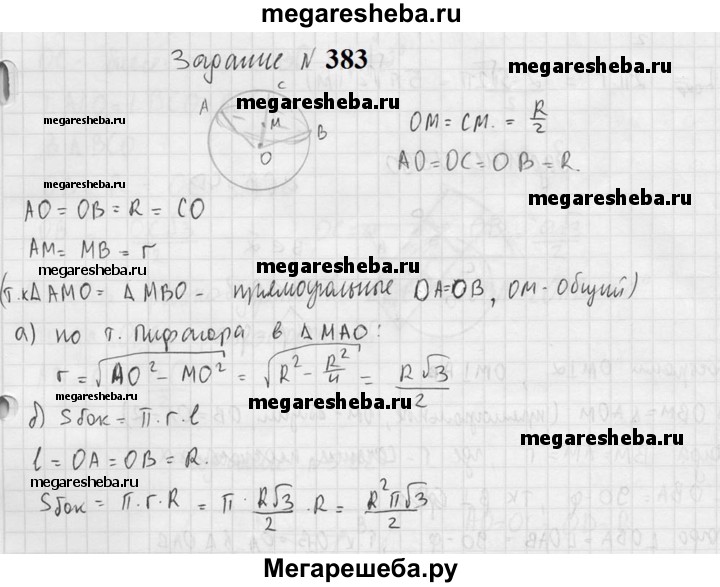 megaresheba.ru
Задание № 383
A C B M O
megaresheba.ru
megaresheba.ru
OM = CM. = R/2
megaresheba.ru
AO = OC = OB = R.
megaresheba.ru
AO = OB = R = CO
AM = MB = r
megaresheba.ru
megaresheba.ru
(т.к Δ AMO = Δ MBO - прямоугольные OA=OB, OM - общий)
а) по т. Пифагора в Δ MAO:
r = √(AO² - MO²) = √(R² - R²/4) = R√3/2
megaresheba.ru
megaresheba.ru
б) Sбок = π · r · l
megaresheba.ru
l = OA = OB = R.
Sбок = π · r · R = π · R√3/2 · R = R²π√3/2
Мегарешеба.ру